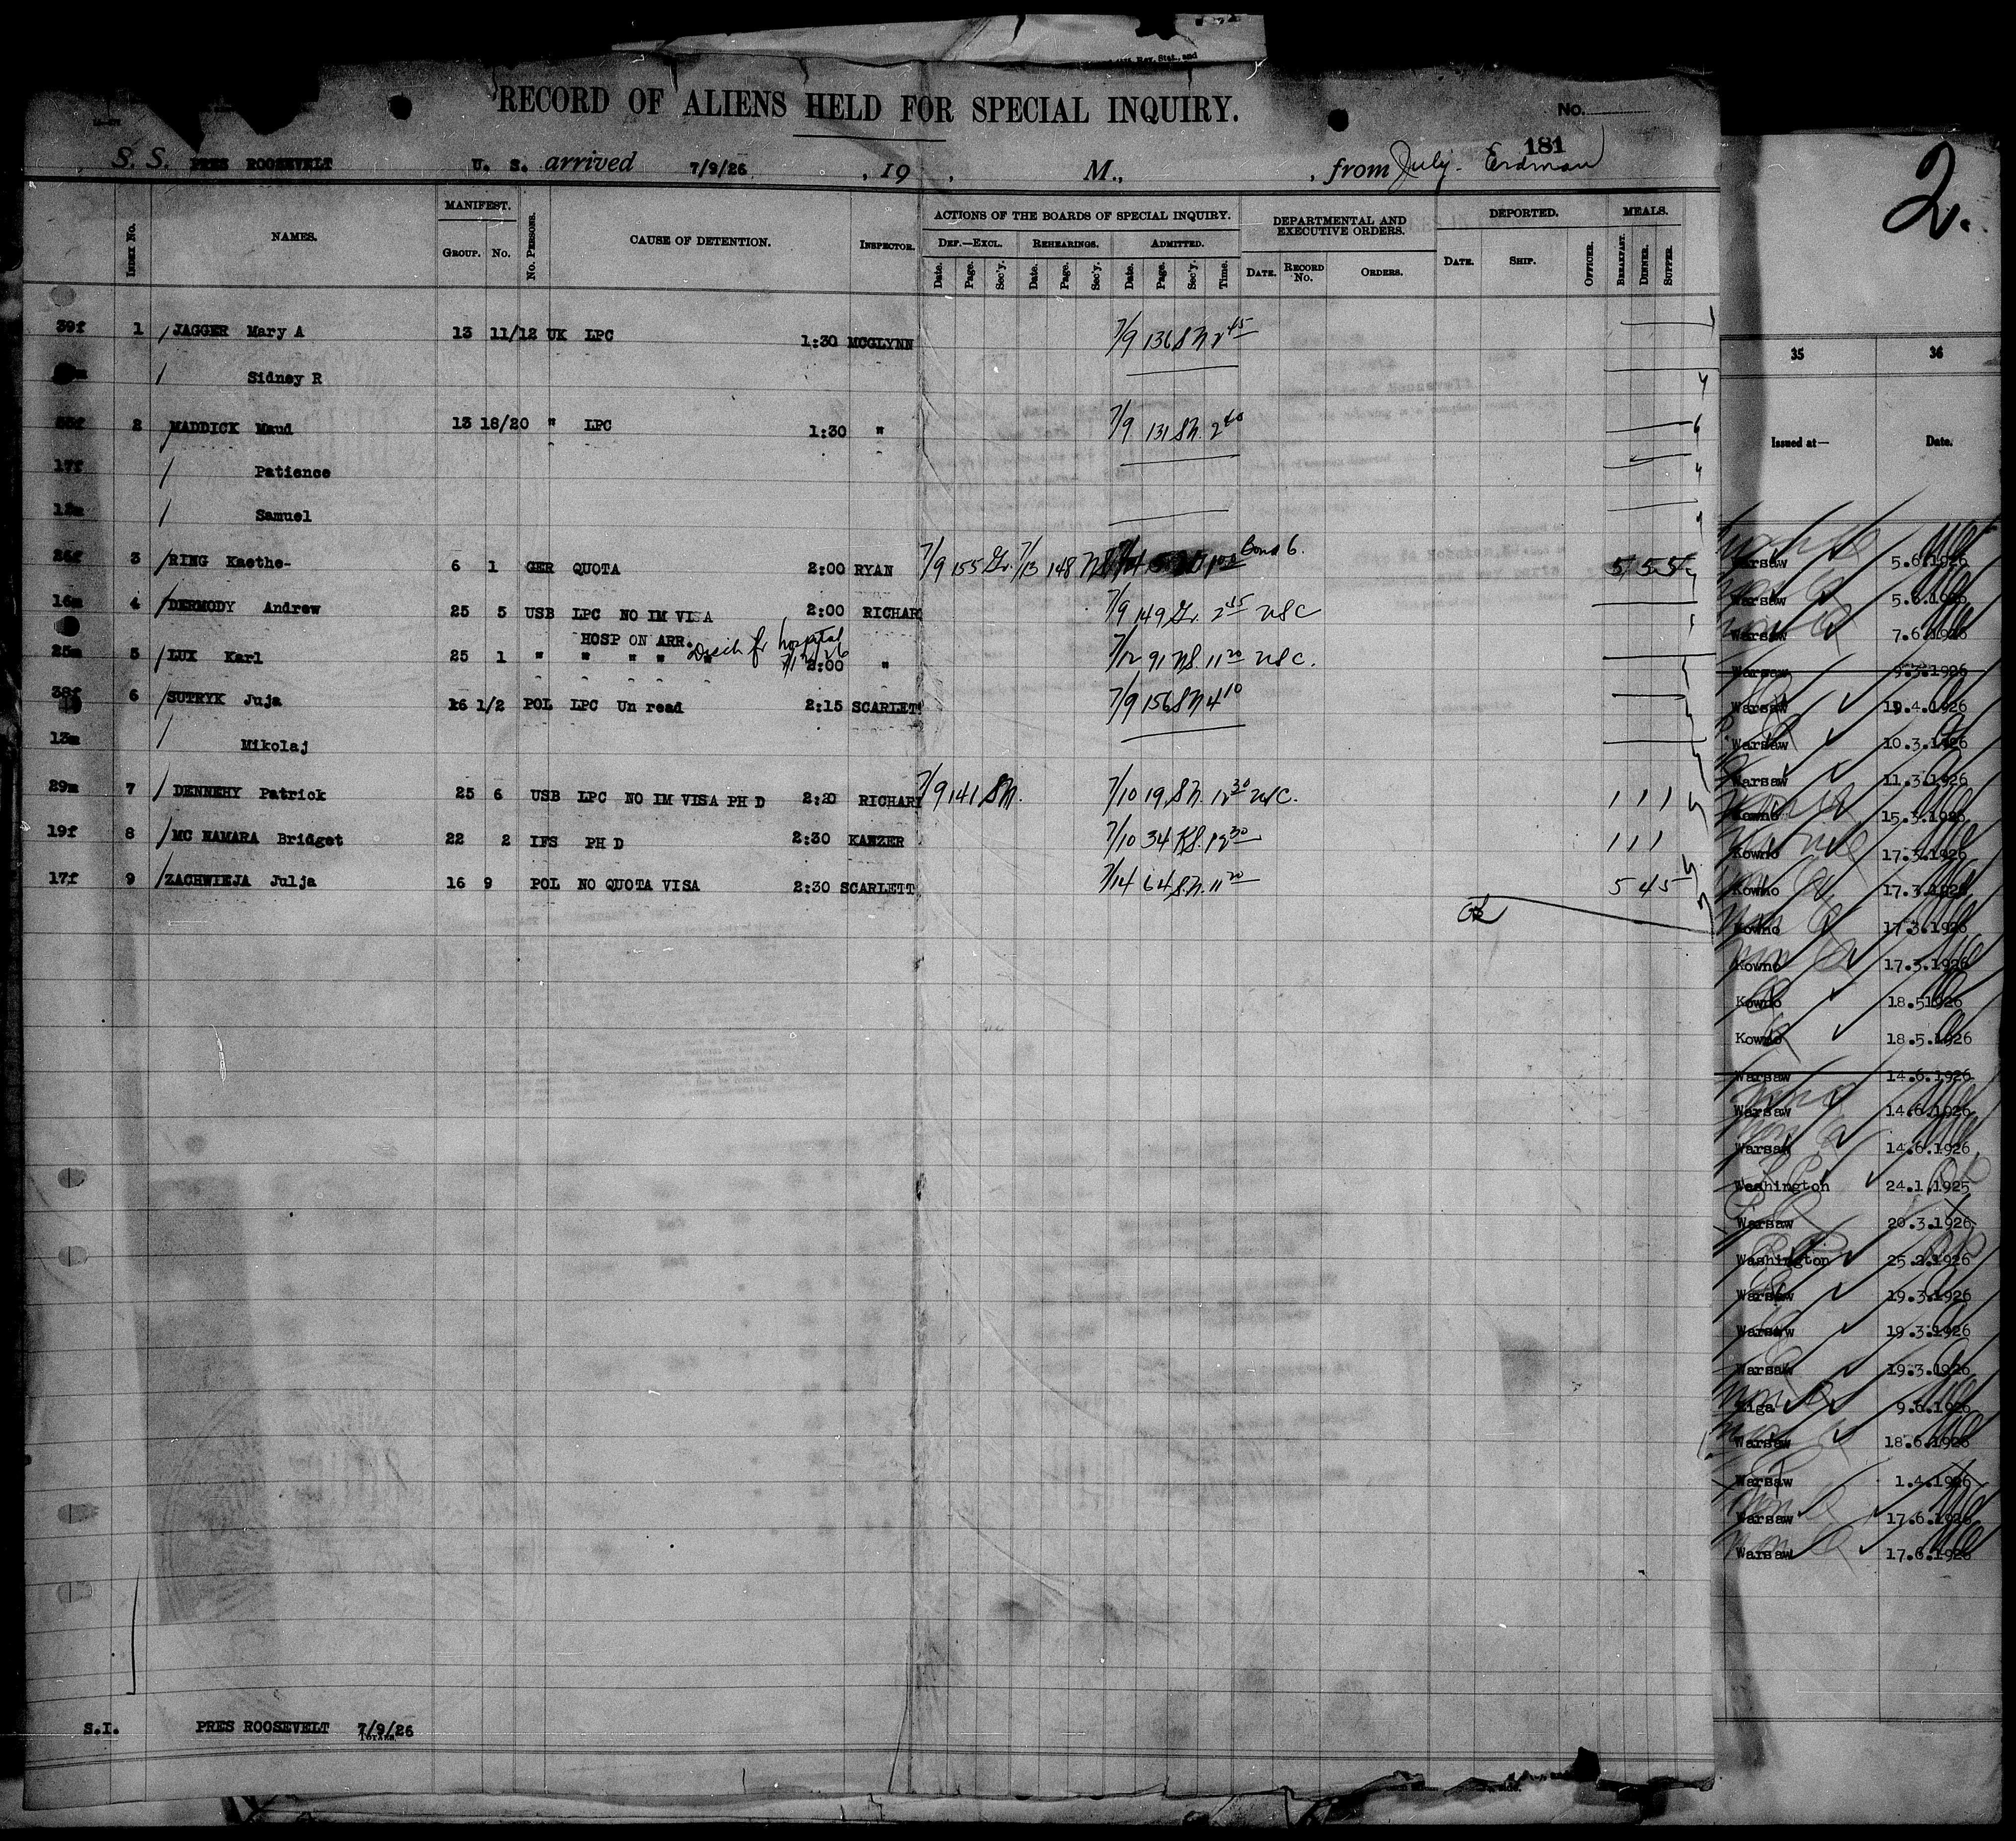 RECORD OF ALIENS HELD FOR SPECIAL INQUIRY.
No.
181
S. S. PRES ROOSEVELT U. S. arrived 7/9/26 , 19 , M., , from July. Erdman
2.
INDEX No. NAMES. MANIFEST. GROUP. No. No. PERSONS. CAUSE OF DETENTION. INSPECTOR.
ACTIONS OF THE BOARDS OF SPECIAL INQUIRY. DEF.—EXCL. REHEARINGS. ADMITTED.
Date. Page. Sec'y. Date. Page. Sec'y. Date. Page. Sec'y. Time.
DEPARTMENTAL AND EXECUTIVE ORDERS. DATE. RECORD No. ORDERS.
DEPORTED. DATE. SHIP. OFFICER. MEALS. BREAKFAST. DINNER. SUPPER.
39f 1 JAGGER Mary A 13 11/12 UK LPC 1:30 MCGLYNN 7/9 136 SM 2 45
Sidney R
2 MADDICK Maud 13 18/20 " LPC 1:30 " 7/9 131 SM. 2 40
17f Patience
12m Samuel
26f 3 RING Kaethe- 6 1 GER QUOTA 2:00 RYAN 7/9 155 Gr. 7/13 148 Bond 6. 5 5 5
16m 4 DERMODY Andrew 25 5 USB LPC NO IM VISA 2:00 RICHAR 7/9 149 Gr. 2 45 USC
HOSP ON ARR. Disch fr hospital 7/12/26
25m 5 LUX Karl 25 1 " " " " " 2:00 " 7/12 91 NS. 11 20 USC.
38f 6 SUTRYK Juja 16 1/2 POL LPC Un read 2:15 SCARLETT 7/9 156 SM 4 10
13m Mikolaj
29m 7 DENNEHY Patrick 25 6 USB LPC NO IM VISA PH D 2:20 RICHAR 7/9 141 SM. 7/10 19 SM. 12 30 USC. 1 1 1
19f 8 MC NAMARA Bridget 22 2 IFS PH D 2:30 KANZER 7/10 34 KS. 12 30 1 1 1
17f 9 ZACHWIEJA Julja 16 9 POL NO QUOTA VISA 2:30 SCARLETT 7/14 64 S.M. 11 20 5 4 5
OK
S.I. PRES ROOSEVELT 7/9/26
TOTALS
35 36
Issued at— Date.
Warsaw 5.6.1926
Warsaw 5.6.1926
Warsaw 7.6.1926
Warsaw 9.3.1926
Warsaw 19.4.1926
Warsaw 10.3.1926
Warsaw 11.3.1926
Kowno 15.3.1926
Kowno 17.3.1926
Kowno 17.3.1926
Kowno 17.3.1926
Kowno 17.3.1926
Kowno 18.51926
Kowno 18.5.1926
Warsaw 14.6.1926
Warsaw 14.6.1926
Warsaw 14.6.1926
Washington 24.1.1925
Warsaw 20.3.1926
Washington 25.2.1926
Warsaw 19.3.1926
Warsaw 19.3.1926
Warsaw 19.3.1926
Riga 9.6.1926
Warsaw 18.6.1926
Warsaw 1.4.1926
Warsaw 17.6.1926
Warsaw 17.6.1926